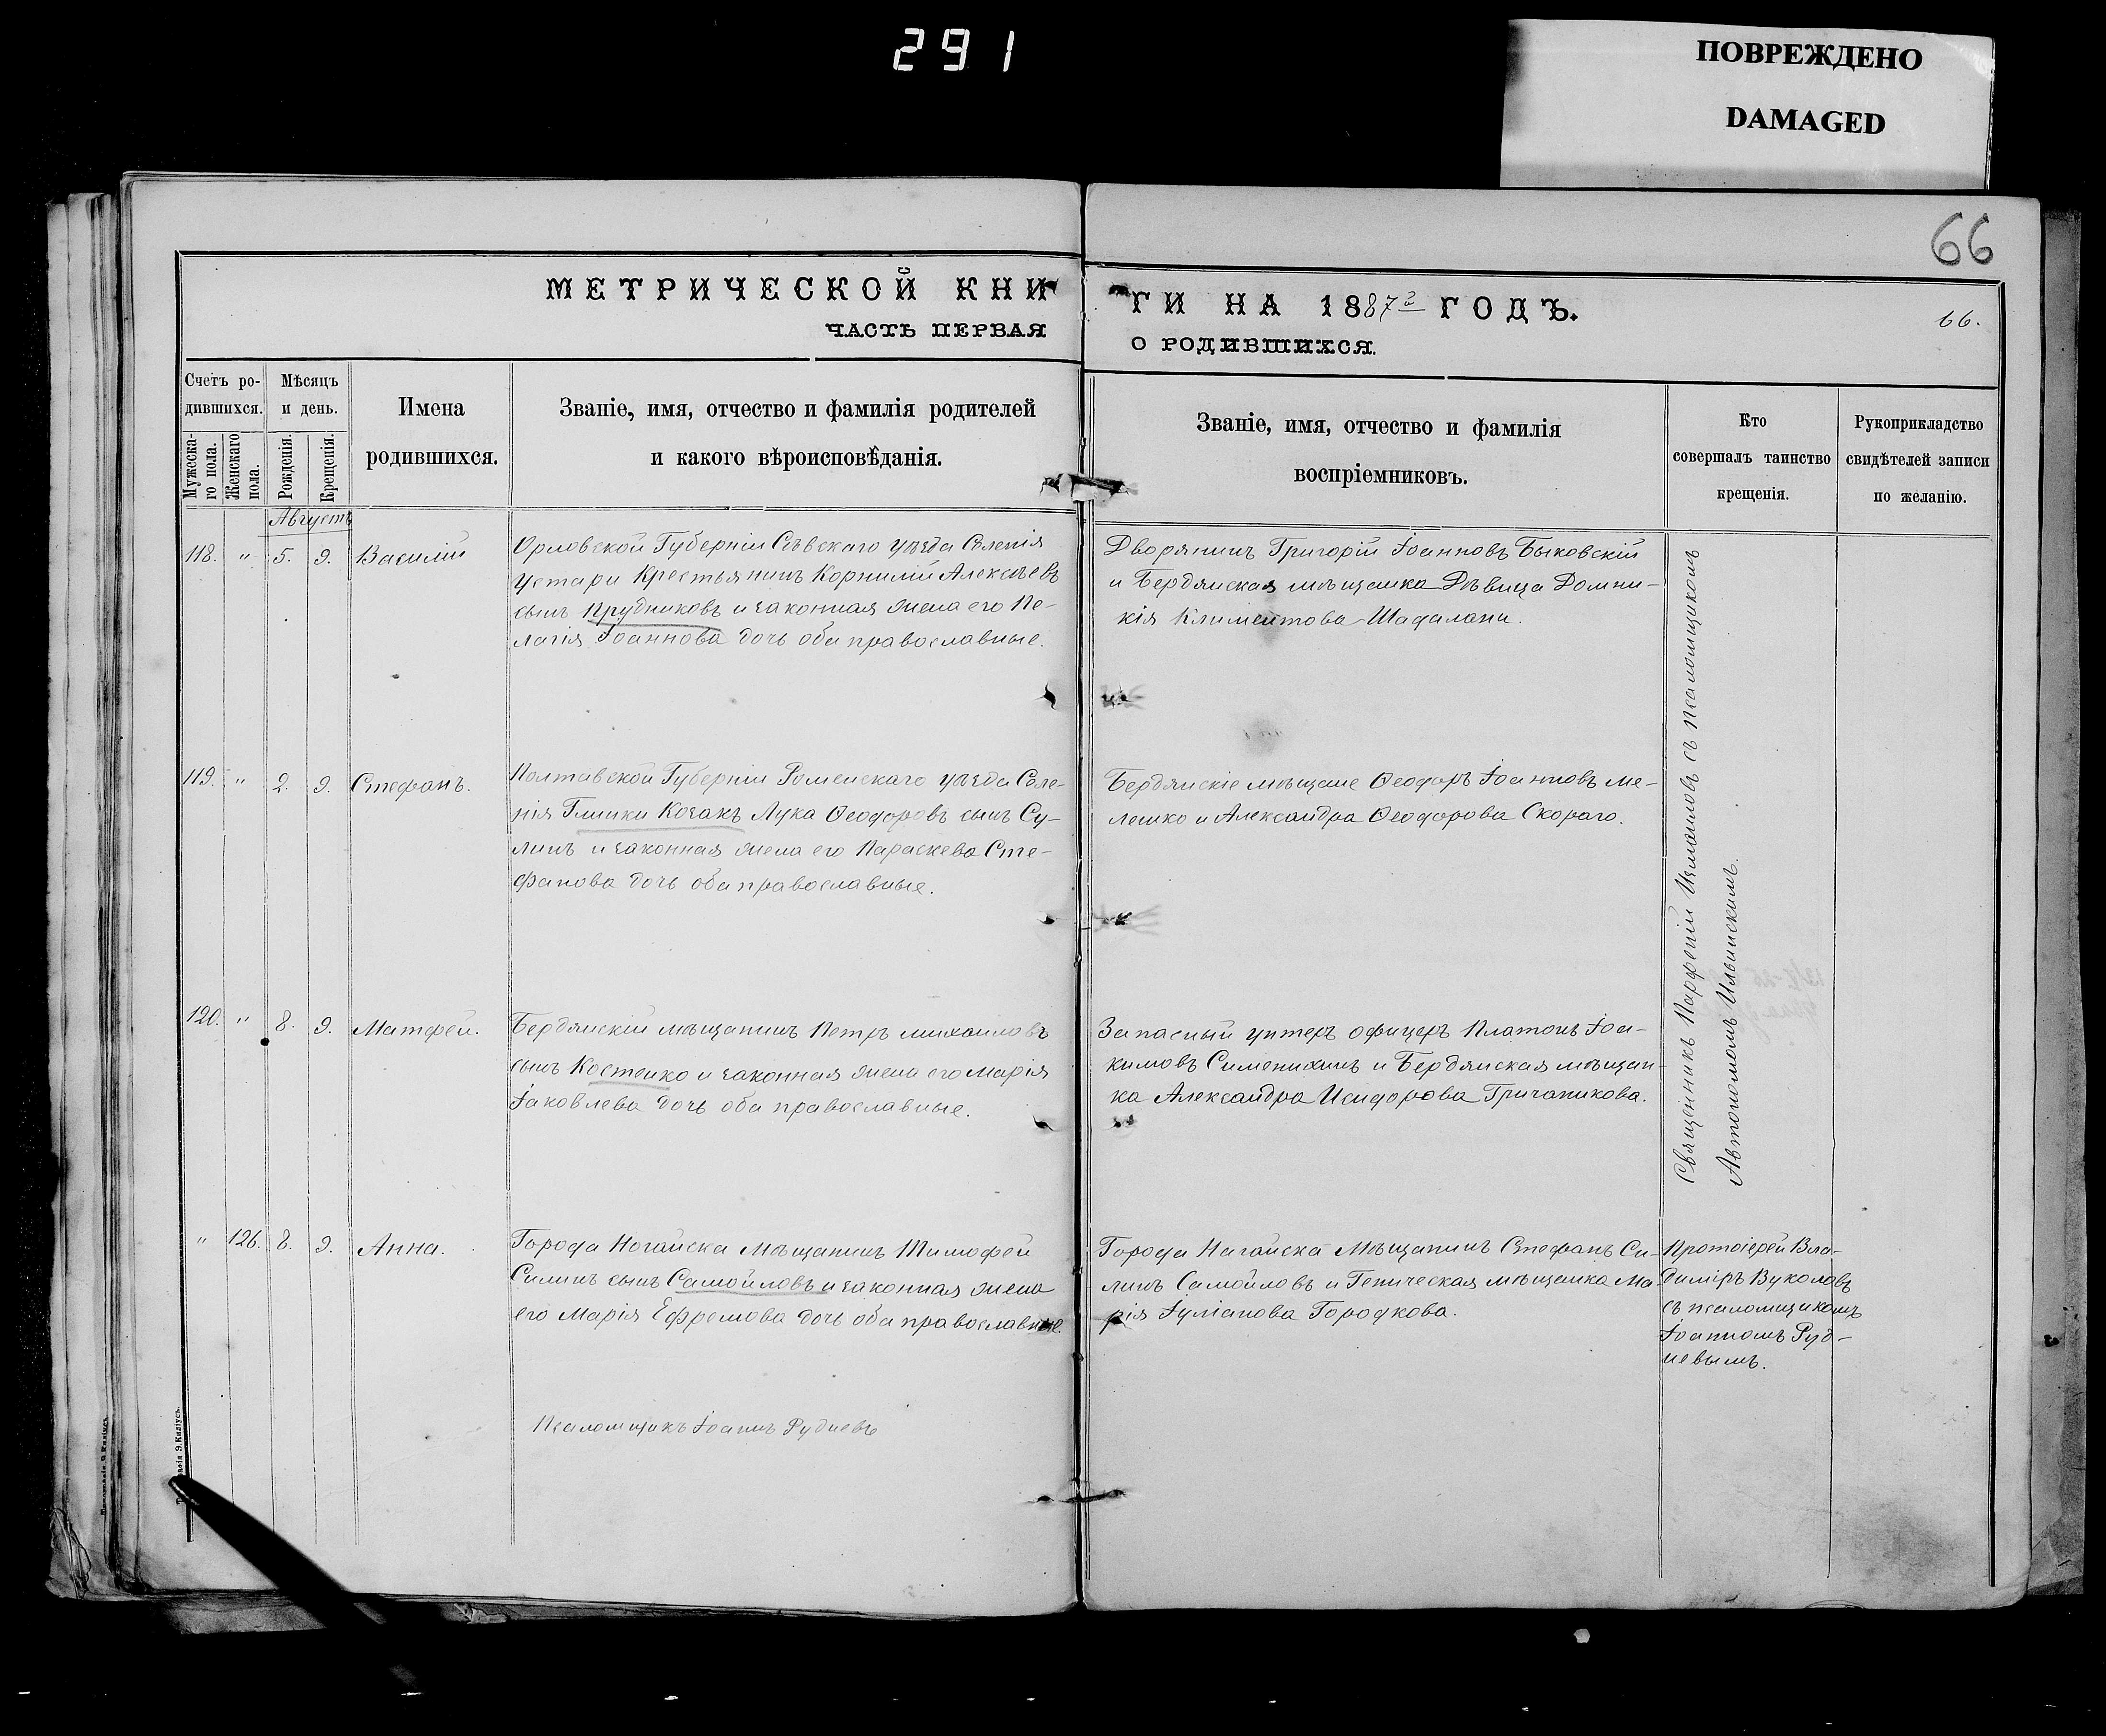 291
ПОВРЕЖДЕНО
DAMAGED
66
МЕТРИЧЕСКОЙ КНИ
ГИ НА 1887 ГОДЪ.
66.
ЧАСТЬ ПЕРВАЯ
О РОДИВШИХСЯ.
Счетъ ро-
дившихся.
Мужеска-
го пола.
Женскаго
пола.
Мѣсяцъ
и день.
Рожденія.
Крещенія.
Имена
родившихся.
Званіе, имя, отчество и фамилія родителей
и какого вѣроисповѣданія.
Званіе, имя, отчество и фамилія
воспріемниковъ.
Кто
совершалъ таинство
крещенія.
Рукоприкладство
свидѣтелей записи
по желанію.
Августъ
118. " 5. 9. Василій
Орловской Губерніи Сѣвскаго уѣзда Селенія
Устари Крестьянинъ Корнилій Алексѣевъ
сынъ Прудниковъ и законная жена его Пе-
лагія Іоаннова дочь оба православные.
Дворянинъ Григорій Іоанновъ Быковскій
и Бердянская мѣщанка Дѣвица Домни-
кія Климентова Шадалани.
Священникъ Парфеній Измаиловъ съ псаломщикомъ
Автономомъ Ильинскимъ.
119. " 2. 9. Стефанъ.
Полтавской Губерніи Роменскаго уѣзда Селе-
нія Глинки Козакъ Лука Ѳеодоровъ сынъ Су-
лимъ и законная жена его Параскева Сте-
фанова дочь оба православные.
Бердянскіе мѣщане Ѳеодоръ Іоанновъ Ме-
лешко и Александра Ѳеодорова Скораго.
120. " 8. 9. Матфей.
Бердянскій мѣщанинъ Петръ Михаиловъ
сынъ Костенко и законная жена его Марія
Іаковлева дочь оба православные.
Запасный унтеръ офицеръ Платонъ Іоа-
кимовъ Сименихинъ и Бердянская мѣщан-
ка Александра Исидорова Гричаникова.
" 126. 8. 9. Анна.
Города Ногайска Мѣщанинъ Тимофей
Силинъ сынъ Самойловъ и законная жена
его Марія Ефремова дочь оба православные.
Города Нагайска Мѣщанинъ Стефанъ Си-
линъ Самойловъ и Геническая мѣщанка Ма
рія Іуліанова Городкова.
Протоіерей Вла-
диміръ Вуколовъ
съ псаломщикомъ
Іоанномъ Руд-
невымъ.
Псаломщикъ Іоаннъ Рудневъ